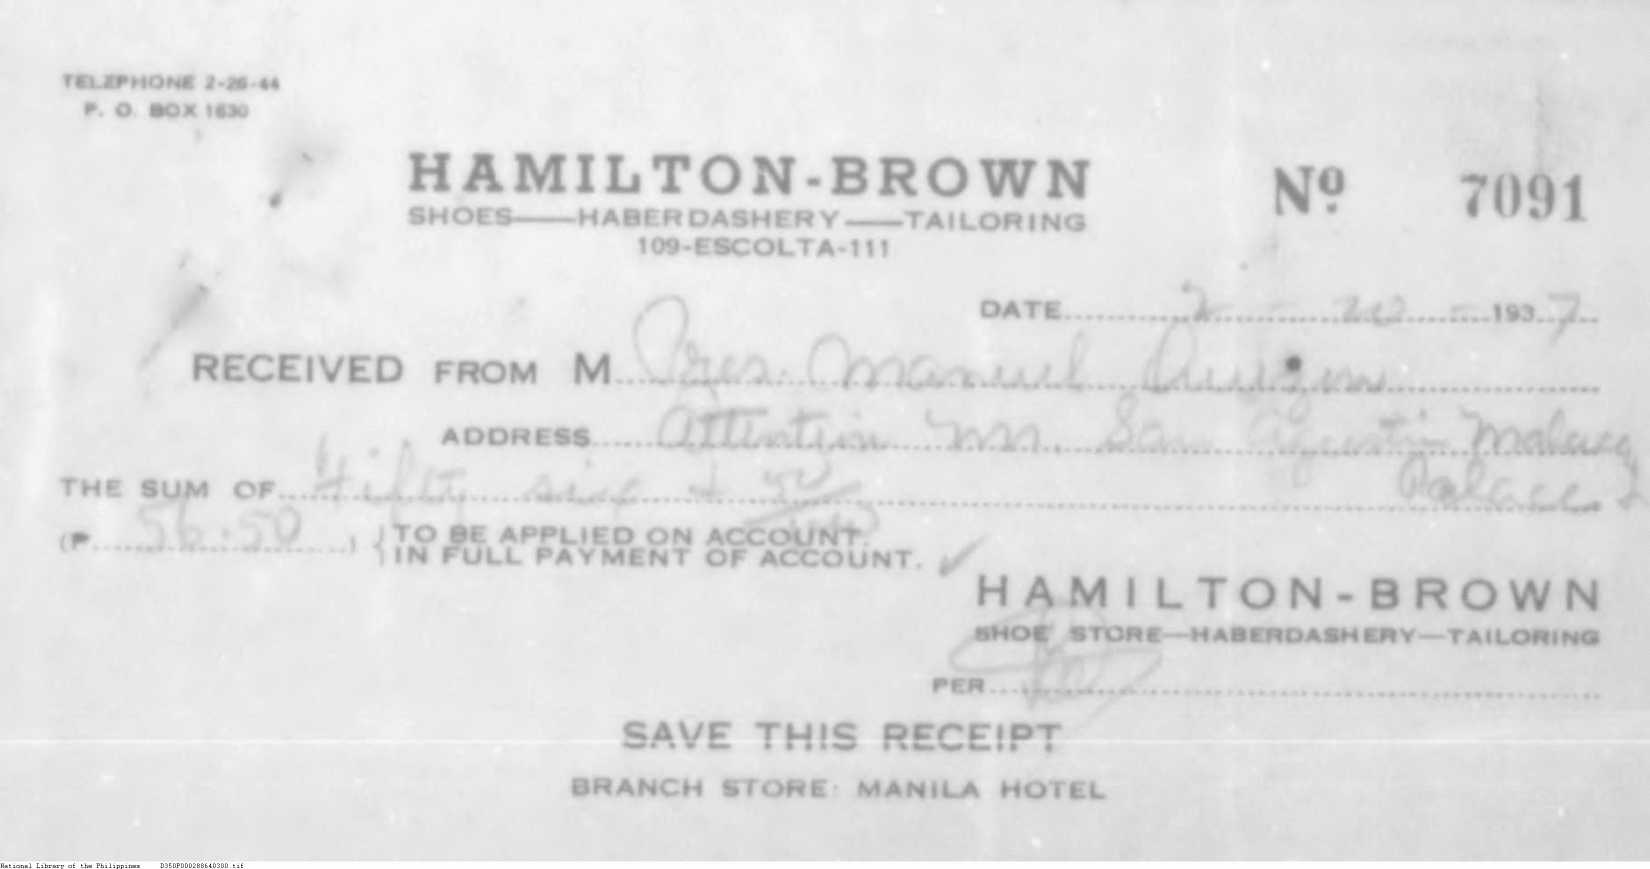 TELEPHONE 2-26-44
P. O. BOX 1630
HAMILTON-BROWN
SHOES—HABERDASHERY—TAILORING
109-ESCOLTA-111
Nº 7091
DATE 2 - 20 - 1937
RECEIVED FROM M Pres. Manuel Quezon
ADDRESS Attention Mr. San Agustin Malacañ
Palace
THE SUM OF Fifty six + 50/100
(₱ 56.50 ) { TO BE APPLIED ON ACCOUNT.
IN FULL PAYMENT OF ACCOUNT. ✓
HAMILTON-BROWN
SHOE STORE—HABERDASHERY—TAILORING
PER
SAVE THIS RECEIPT
BRANCH STORE: MANILA HOTEL
National Library of the Philippines D350P000288640300.tif